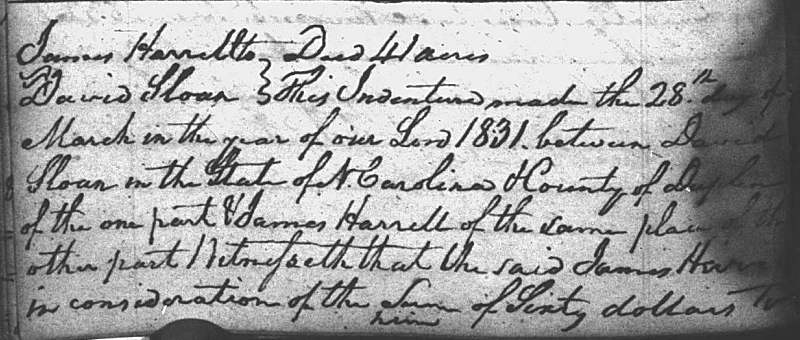 James Harrell to } Deed 41 acres
David Sloan } This Indenture made the 28.th day of
March in the year of our Lord 1831. between David
Sloan in the State of N. Carolina & County of Duplin
of the one part & James Harrell of the same place of the
other part Witnesseth that the said James Harrell
in consideration of the Sum of Sixty dollars To
him